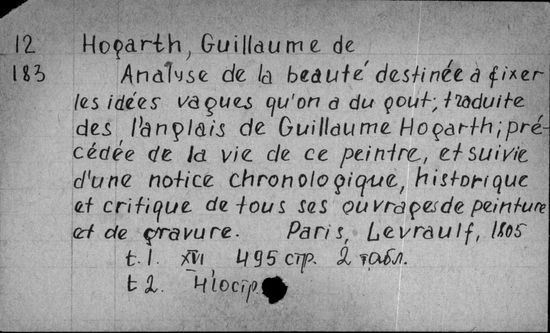 12 Hogarth, Guillaume de
183 Analyse de la beauté destinée à fixer
les idées vagues qu'on a du gout; traduite
des l'anglais de Guillaume Hogarth; pré-
cédée de la vie de ce peintre, et suivie
d'une notice chronologique, historique
et critique de tous ses ouvrages de peinture
et de gravure. Paris, Levraulf, 1805
t.1. XVI 495 стр. 2 табл.
t 2. 410 стр.